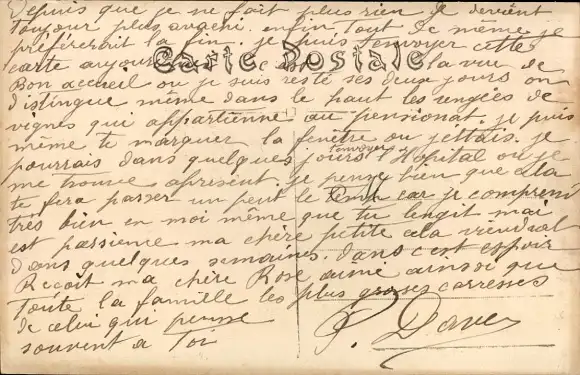 Depuis que je ne fait plus rien je devient
toujour plus avachi enfin tout de même je
préférerait la fin. je puis t'envoyer cette
carte aujour
Carte Postale
la vue de
Bon accueil ou je suis resté ses deux jours on
distingue même dans le haut les rengées de
vignes qui appartienne au pensionat. je puis
même te marquer la fenêtre ou j'ettais. je
pourrais dans quelques jours t'envoyer l'Hopital ou je
me trouve apresent. je pense bien que cela
te fera passer un peut le temp car je comprend
très bien en moi même que tu lengit mai
est passience ma chère petite cela viendrat
dans quelques semaines. dans c'est espoir
Reçoit ma chère Rose aimé ainsoi que
toute la famille les plus grosses carresses
de celui qui pense
souvent a toi